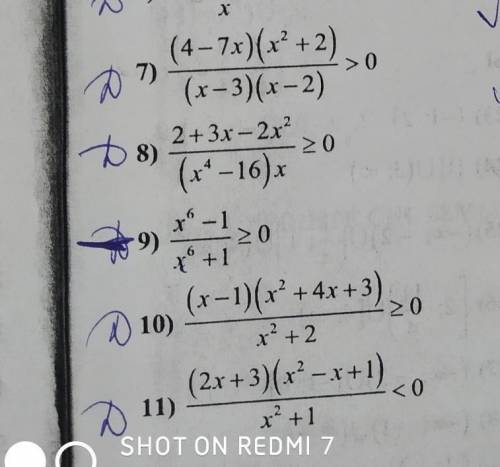 x
7) (4-7x)(x²+2) / (x-3)(x-2) > 0
8) 2+3x-2x² / (x⁴-16)x ≥ 0
9) x⁶-1 / x⁶+1 ≥ 0
10) (x-1)(x²+4x+3) / x²+2 ≥ 0
11) (2x+3)(x²-x+1) / x²+1 < 0
SHOT ON REDMI 7